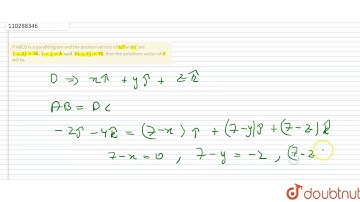 110288346
If ABCD is a parallelogram and the position vectors of A,B and C are
then the position vector of D
will be
D ⇒ xî + yĵ + zk̂
AB = DC
- 2ĵ - 4k̂ = (7-x) î + (7-y)ĵ + (7-z) k̂
7-x = 0 , 7-y = -2 , (7-z
doubtnut